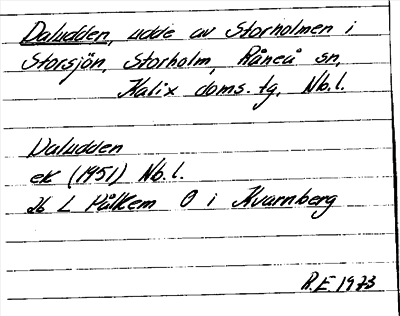 Daludden, udde av Storholmen i
Storsjön, Storholm, Råneå sn,
Kalix doms. tg, Nb.l.
Daludden
ek (1951) Nb.l.
26 L Pålkem O i Kvarnberg
R.E. 1973